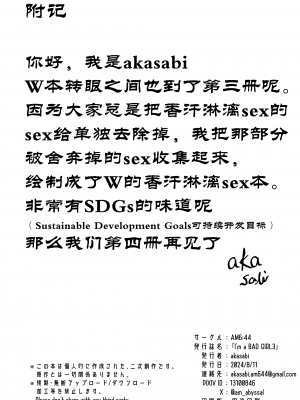 附记
你好，我是akasabi
W本转眼之间也到了第三册呢。
因为大家总是把香汗淋漓sex的
sex给单独去除掉，我把那部分
被舍弃掉的sex收集起来，
绘制成了W的香汗淋漓sex本。
非常有SDGs的味道呢
（Sustainable Development Goals可持续开发目标）
那么我们第四册再见了
aka
sabi
サークル：AM6:44
発行誌名：「i'm a BAD GIRL3」
発行者：akasabi
発行日：2024/8/11
連絡先：akasabi.am644@gmail.com
PIXIV ID：13100846
X：@an_abyssal
※この本は個人的に作成された、二次創作です。
原作とは一切関係ありません。
※複製・無断アップロード/ダウンロード
加工等を禁止します。